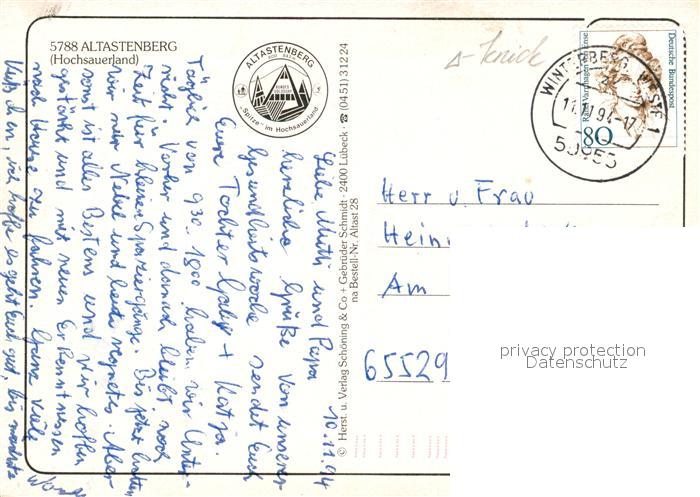 5788 ALTASTENBERG
(Hochsauerland)
ALTASTENBERG
"Spitze" im Hochsauerland
△-Knick
Deutsche Bundespost
Rahel Varnhagen von Ense
80
WINTERBERG, WESTF 1
11.11.94-17
59955
10.11.94
Liebe Mutti und Papa
herzliche Grüße von unserer
Gesundheitswoche sendet Euch
Eure Tochter Gaby + Katja.
Täglich von 9.30 - 18.00 haben wir Unter-
richt. Vorher und danach bleibt noch
Zeit für kleine Spaziergänge. Bis jetzt hatten
wir nur Nebel und heute regnet es. Aber
sonst ist alles Bestens und wir hoffen
gestärkt und mit neuen Erkenntnissen
nach Hause zu fahren. Ganz viele
Küsschen, ich hoffe es geht Euch gut, bis nächste
Woche
© Herst. u. Verlag Schöning & Co + Gebrüder Schmidt · 2400 Lübeck · ☎ (04 51) 3 12 24
na Bestell-Nr. Altast 28
Herr u. Frau
Am
65529
privacy protection
Datenschutz